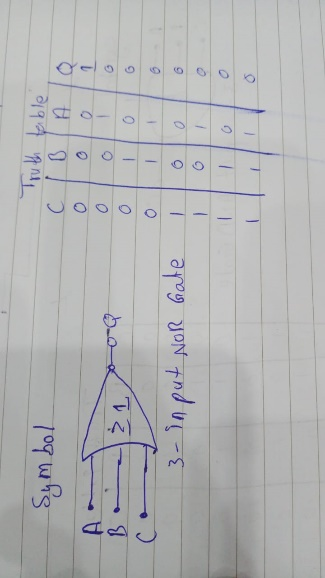 Symbol
A
B
C
≥1
Q
3-input NOR Gate
Truth table
C B A Q
0 0 0 1
0 0 1 0
0 1 0 0
0 1 1 0
1 0 0 0
1 0 1 0
1 1 0 0
1 1 1 0